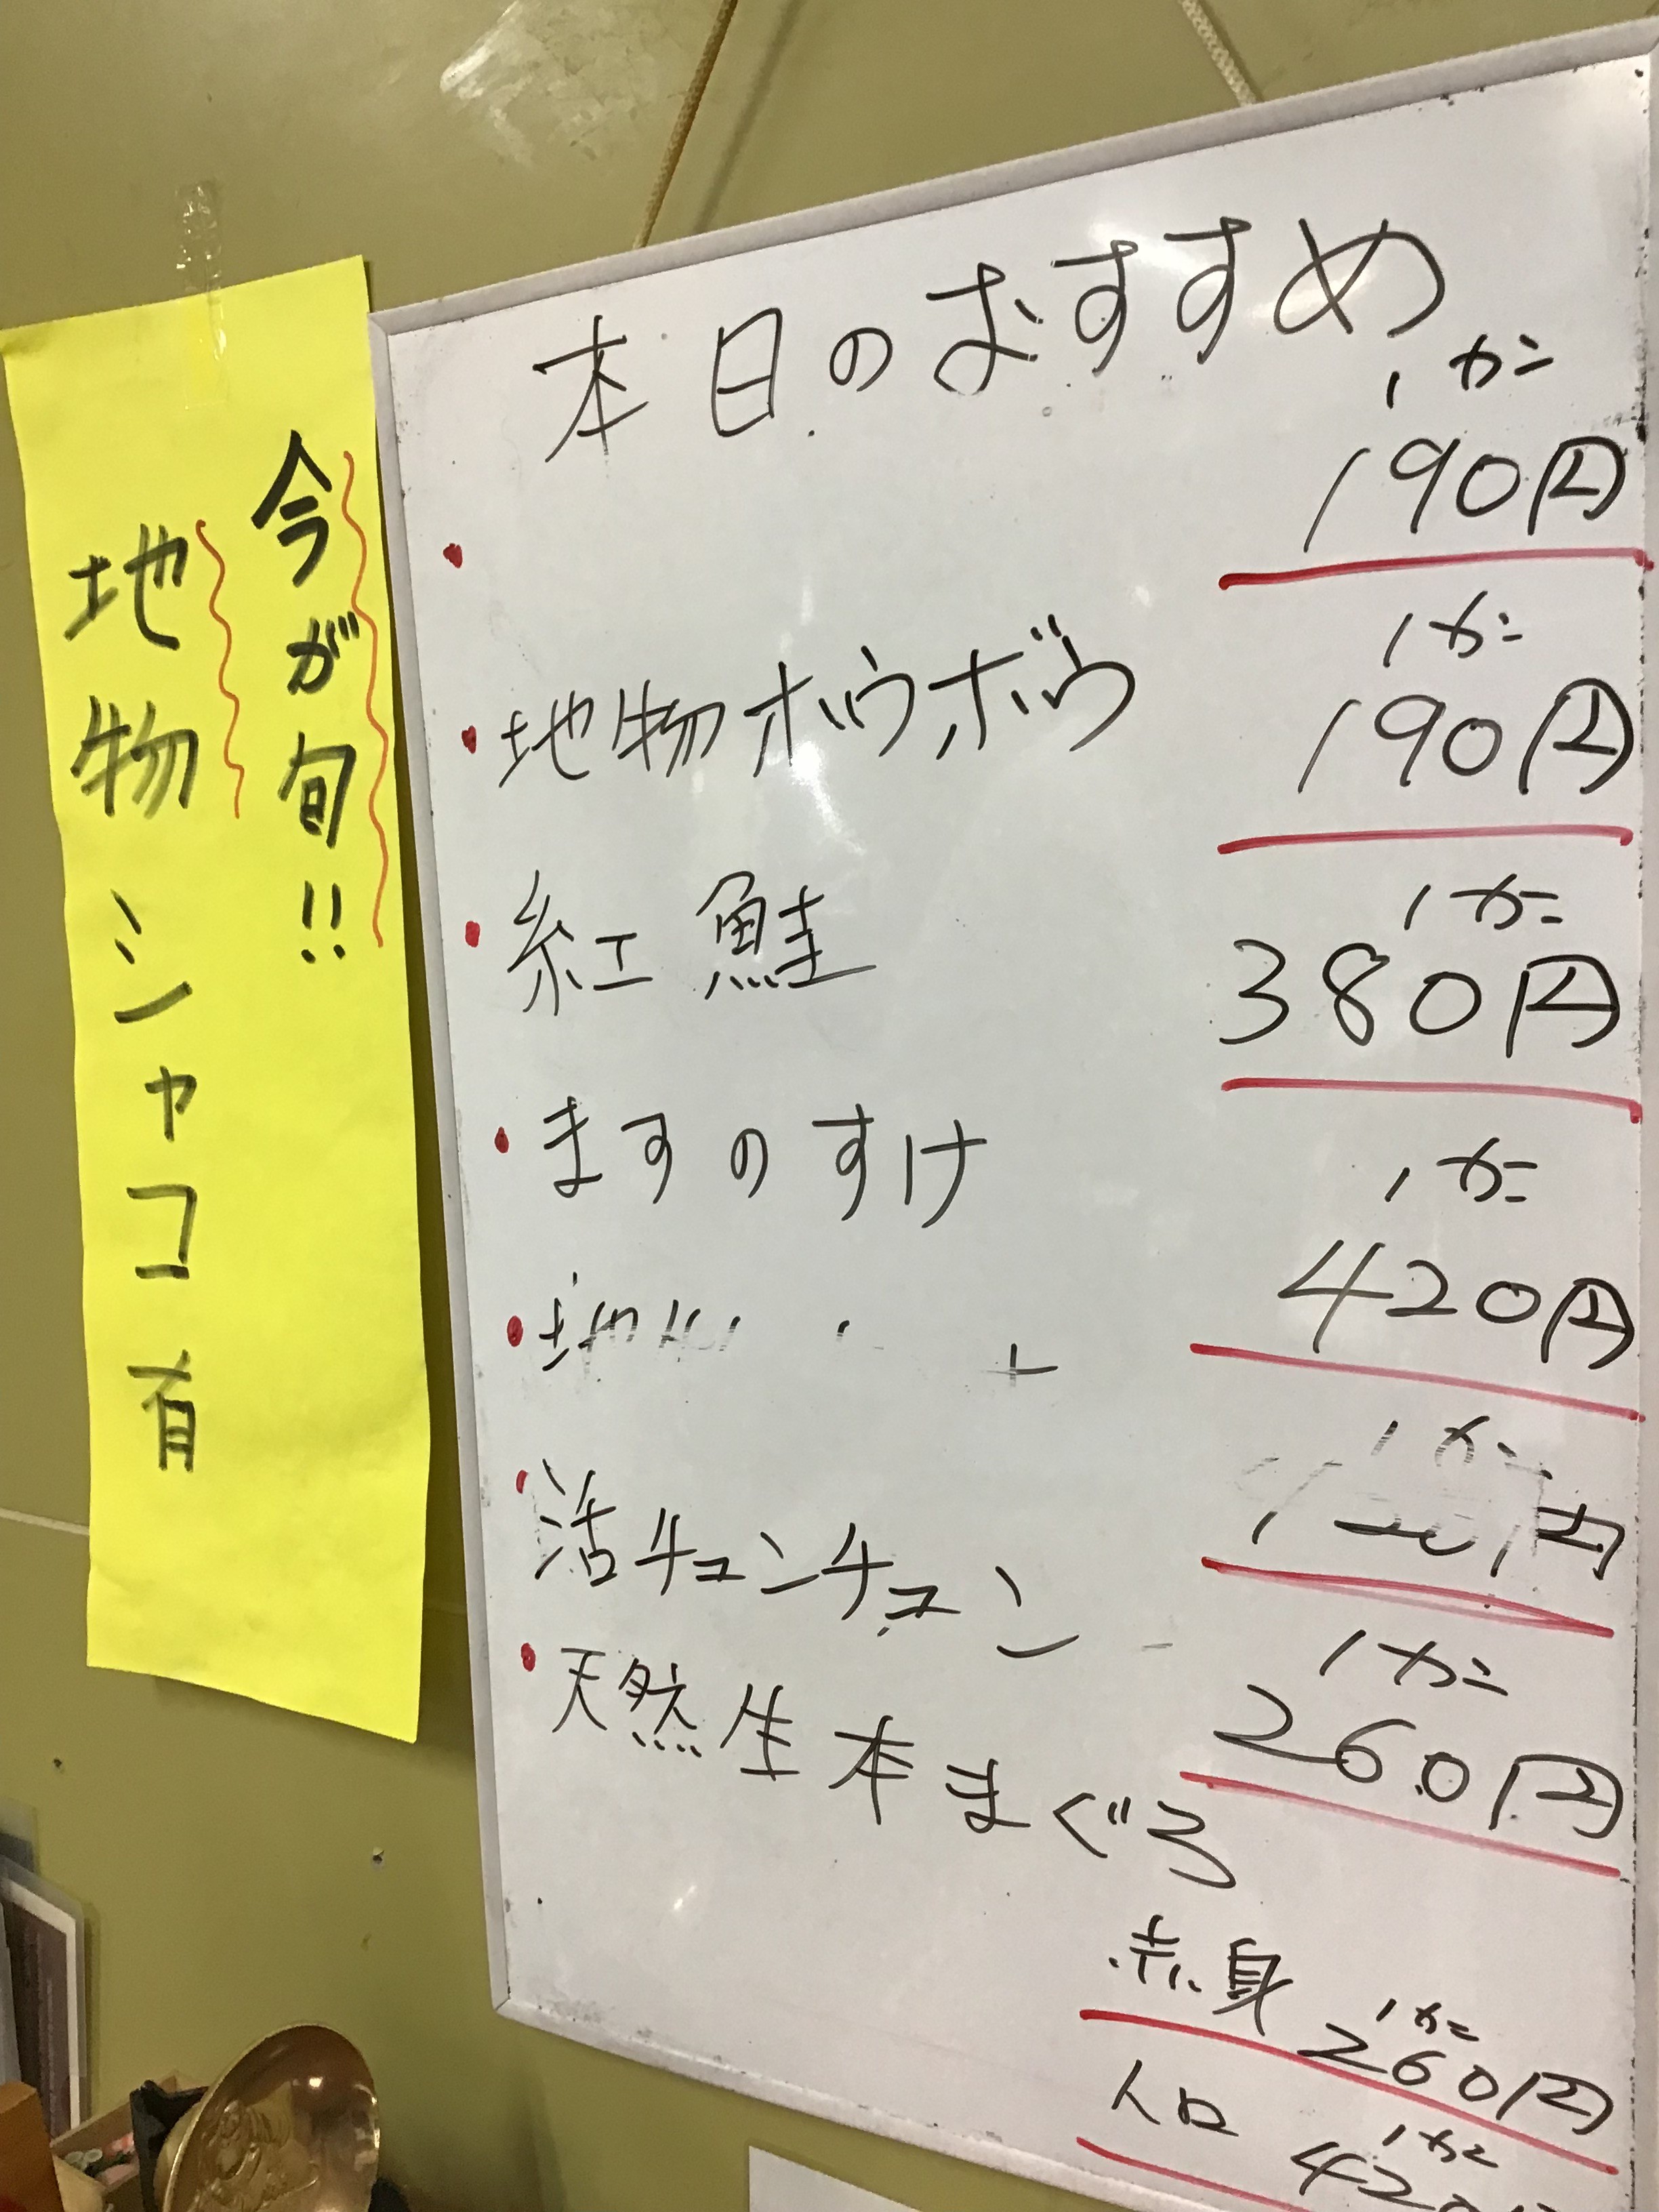 今が旬!!
地物シャコ有
本日のおすすめ
1カン
190円
地物ホウボウ
1カン
190円
紅鮭
1カン
380円
ますのすけ
1カン
420円
地物
1カン
円
活チュンチュン
1カン
260円
天然生本まぐろ
赤身
1カン
260円
トロ
1カン